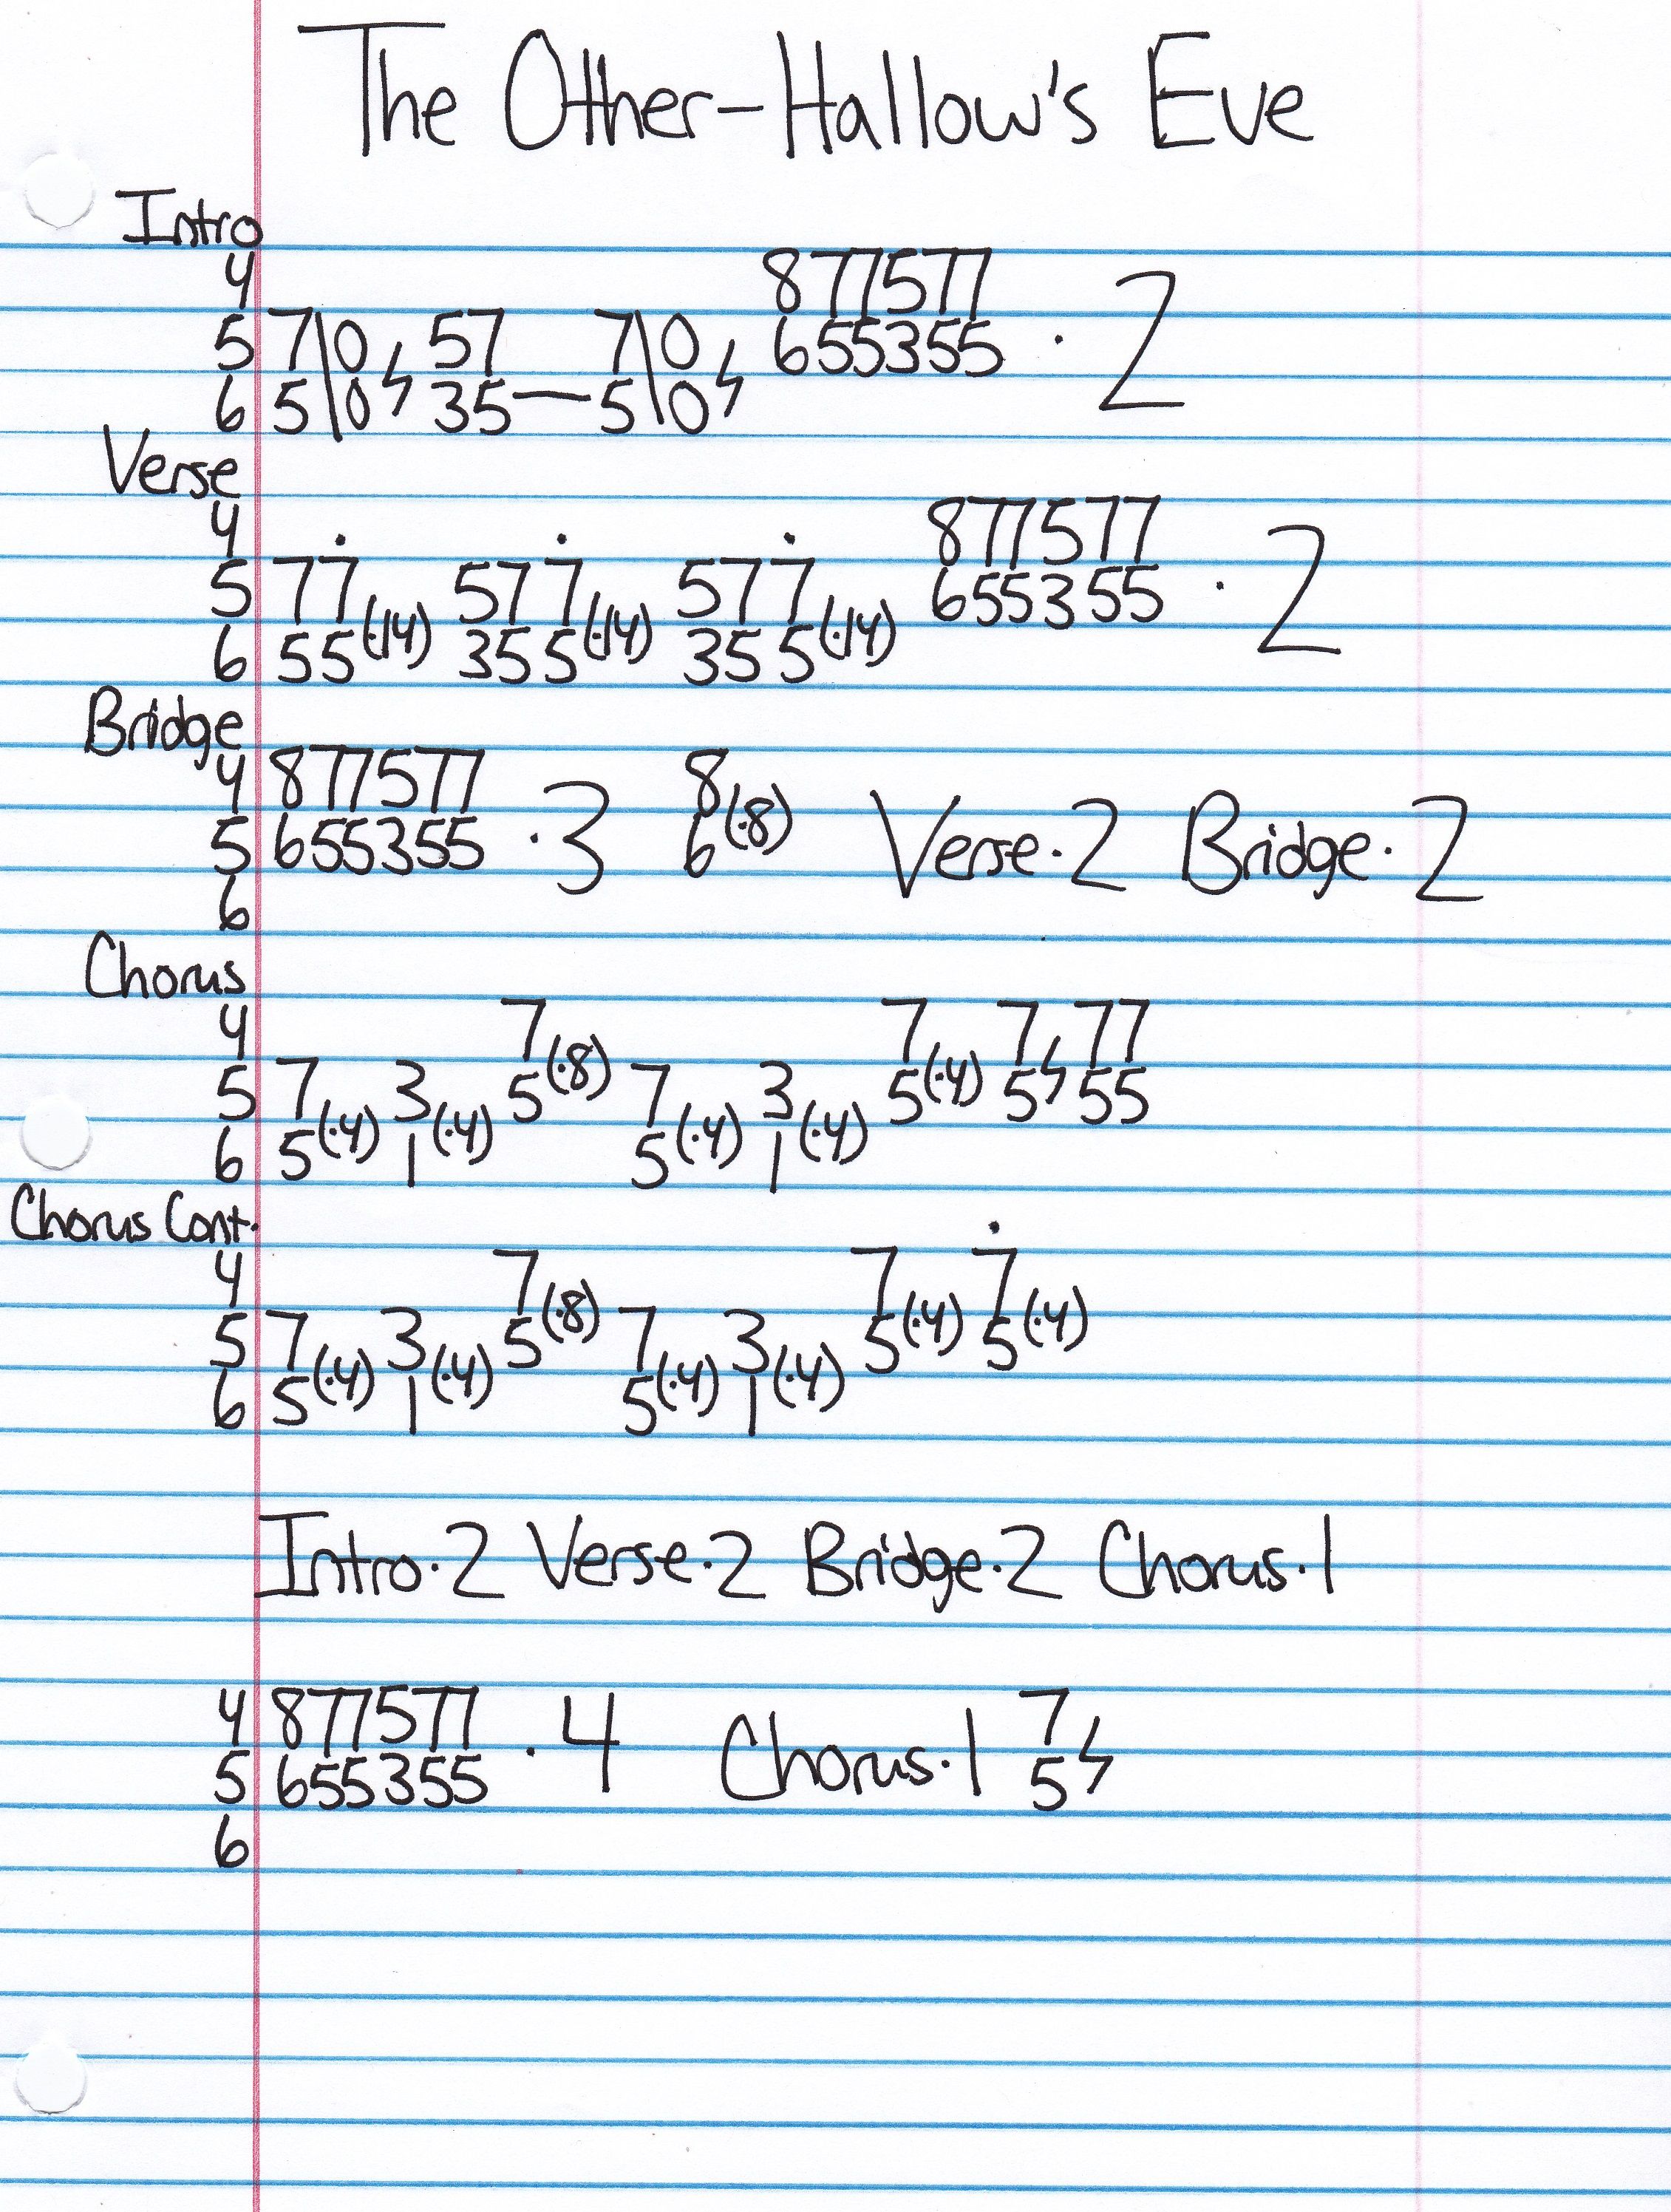 The Other-Hallow's Eve
Intro
4 877577
5 7\0 ϟ 57 7\0 ϟ 655355 · 2
6 5\0 35—5\0
Verse
4 . . . 877577
5 77 577 577 655355 · 2
6 55(·14) 355(·14) 355(·14)
Bridge
4 877577 8
5 655355 ·3 6(·8) Verse·2 Bridge·2
6
Chorus
4 7 7 7 77
5 7 3 5(·8) 7 3 5(·4) 5ϟ 55
6 5(·4) 1(·4) 5(·4) 1(·4)
Chorus Cont.
4 7 7 7̇
5 7 3 5(·8) 7 3 5(·4) 5(·4)
6 5(·4) 1(·4) 5(·4) 1(·4)
Intro·2 Verse·2 Bridge·2 Chorus·1
4 877577 7
5 655355 ·4 Chorus·1 5ϟ
6